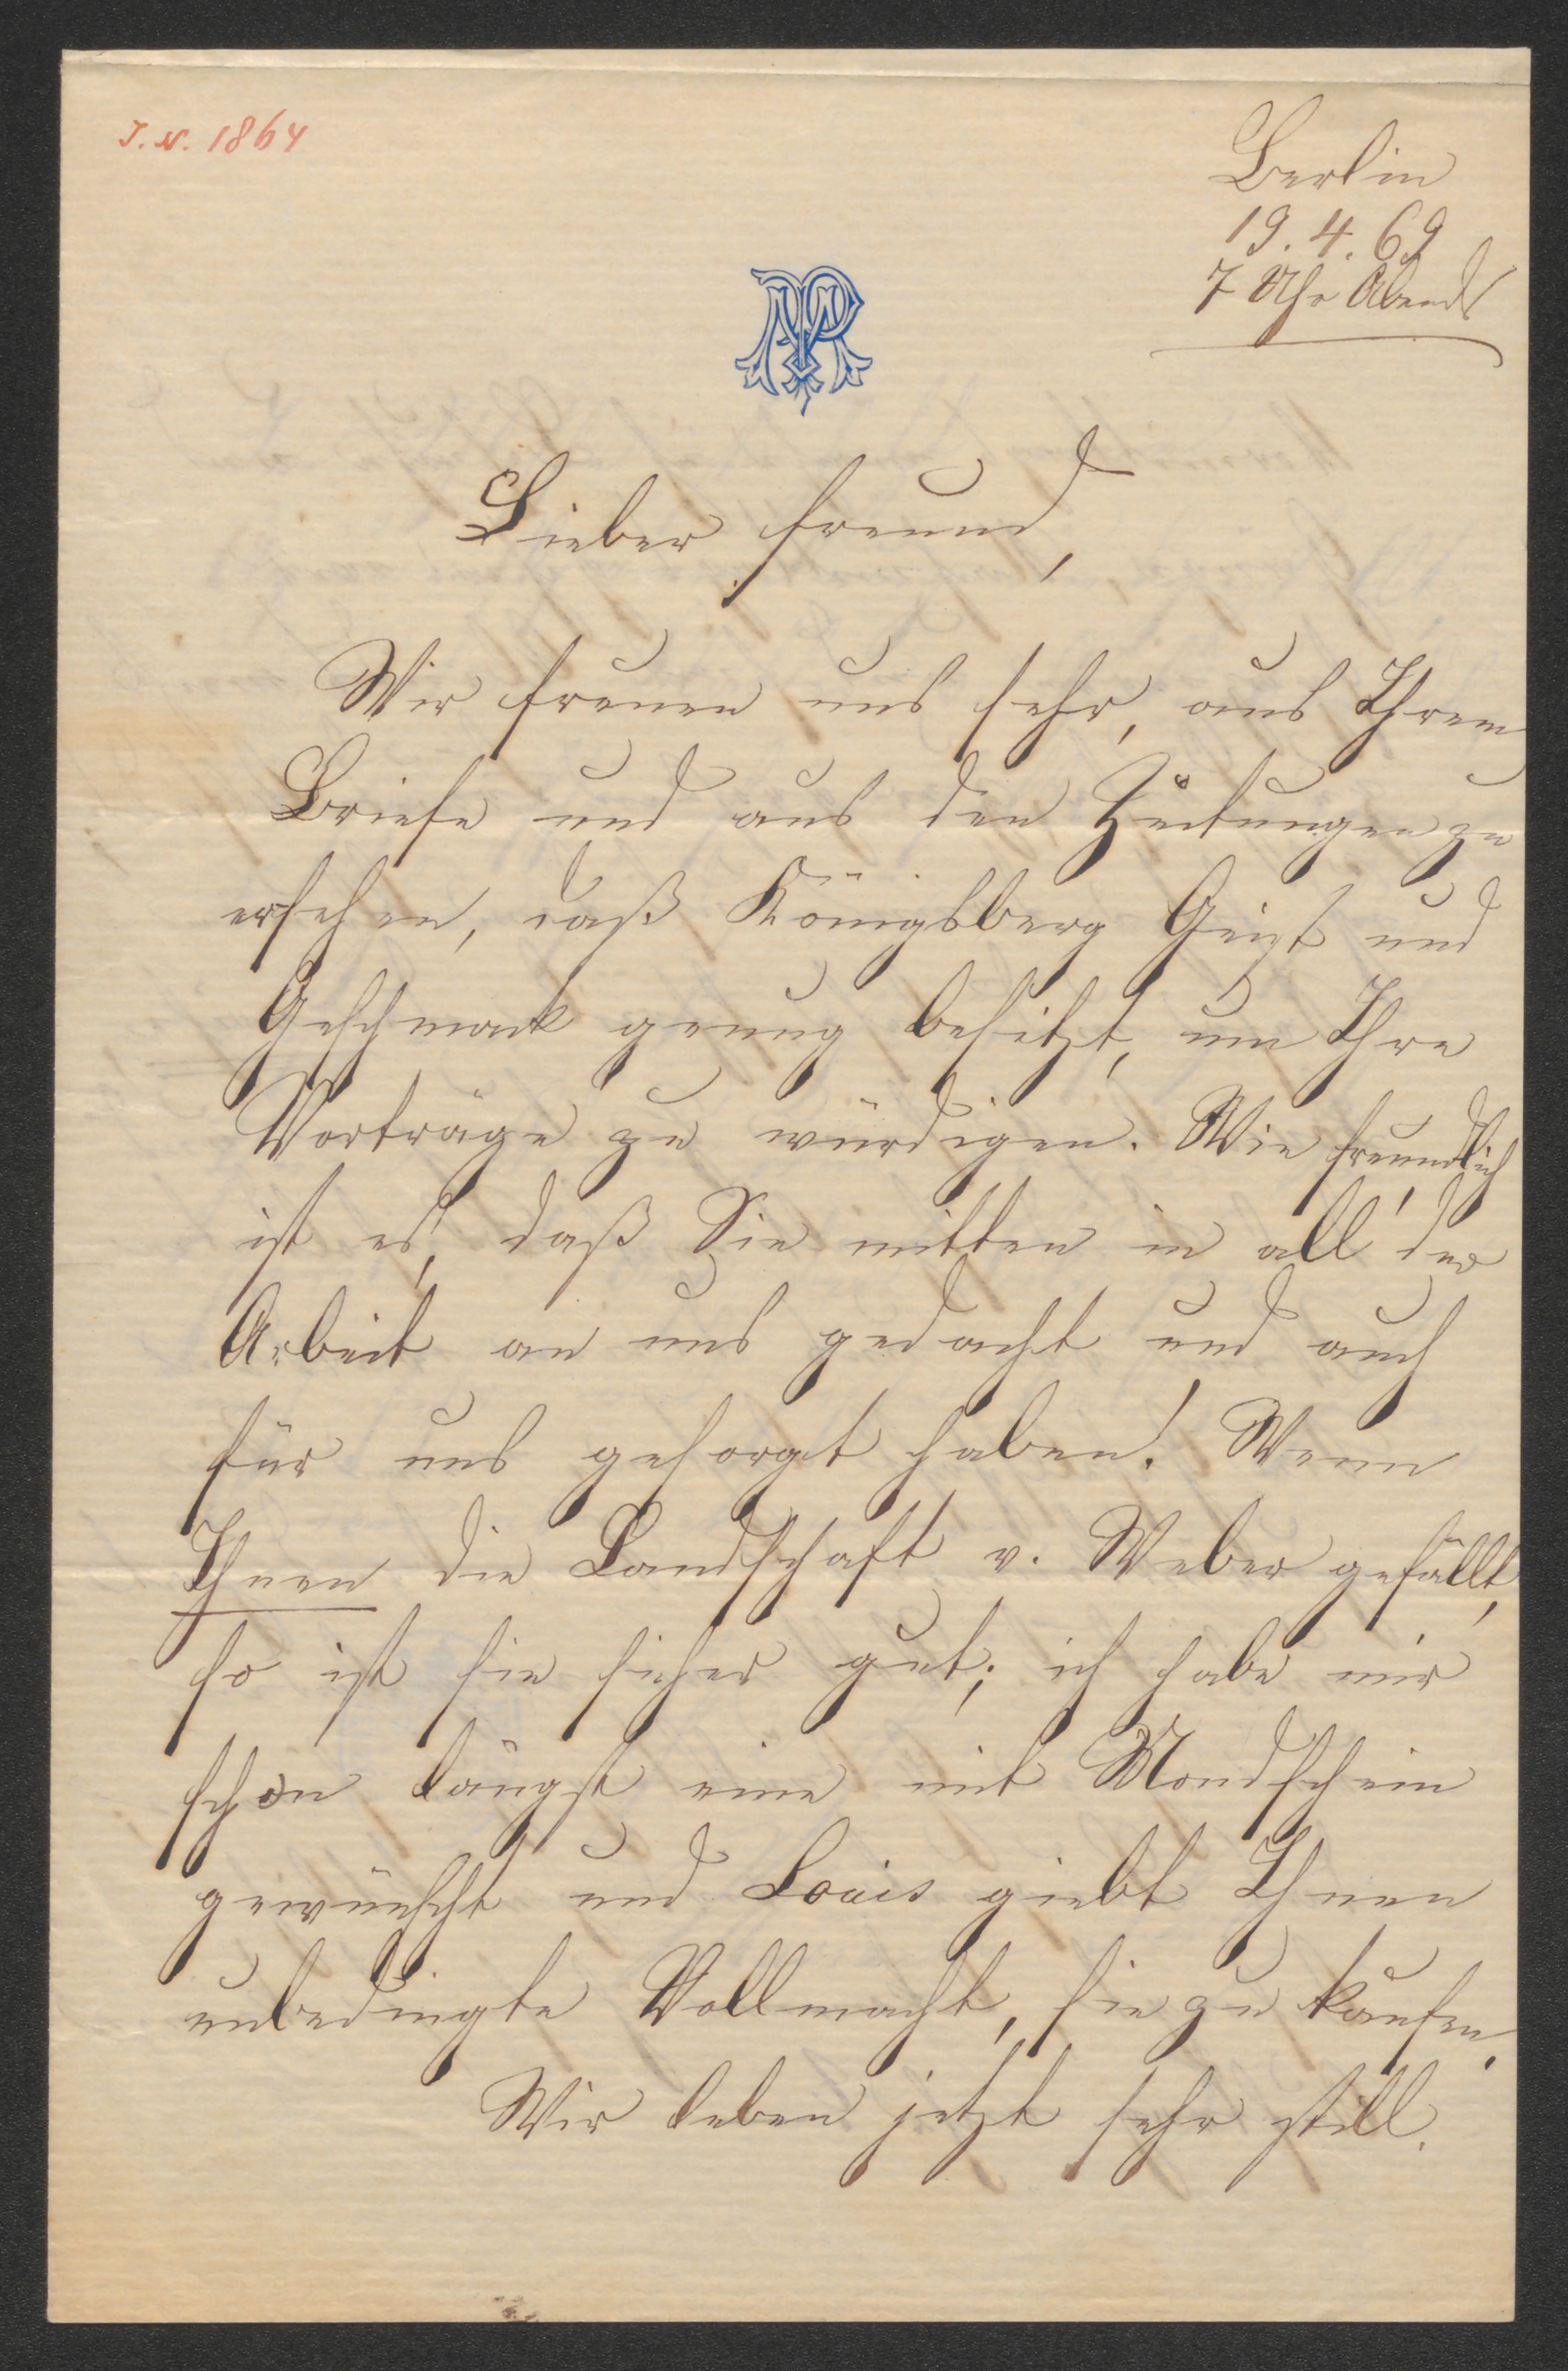 J. N. 1864
Berlin
19. 4. 69
7 Uhr Abends
Lieber Freund,
Wir freuen uns sehr, aus Ihrem
Briefe und aus den Zeitungen zu
ersehen, daß Königsberg Geist und
Geschmack genug besitzt, um Ihre
Vorträge zu würdigen. Wie freundlich
ist es, daß Sie mitten in all' der
Arbeit an uns gedacht und auch
für uns gesorgt haben! Wenn
Ihnen die Landschaft v. Weber gefällt,
so ist sie sicher gut; ich habe mir
schon längst eine mit Mondschein
gewünscht und Louis giebt Ihnen
unbedingte Vollmacht, sie zu kaufen.
Wir leben jetzt sehr still.